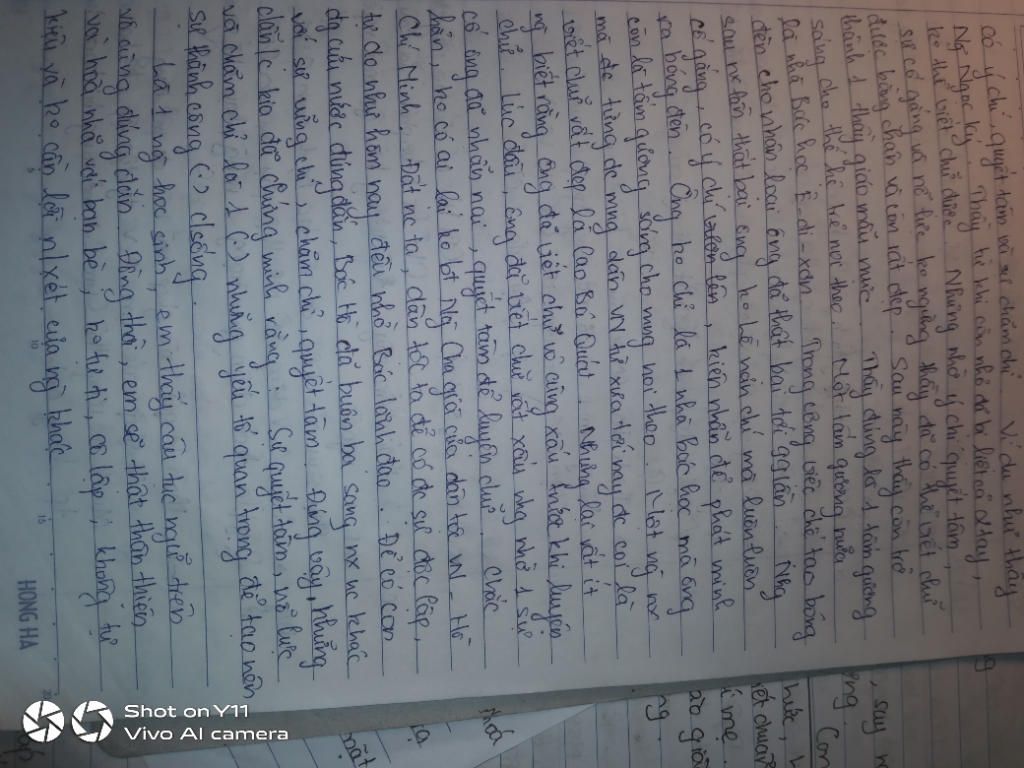 có ý chí, quyết tâm và sự chăm chỉ. Ví dụ như thầy
Ng Ngọc Ký. Thầy từ khi còn nhỏ đc bị liệt cả 2 tay,
ko thể viết chữ được. Nhưng nhờ ý chí quyết tâm,
sự cố gắng và nỗ lực ko ngừng thầy đã có thể viết chữ
được bằng chân và còn rất đẹp. Sau này thầy còn trở
thành 1 thầy giáo mẫu mực. Thầy đúng là 1 tấm gương
sáng cho thế hệ trẻ noi theo. Một tấm gương nữa
là nhà bác học Ê-đi-xơn. Trong công việc chế tạo bóng
đèn cho nhân loại ông đã thất bại tới lần. Nhg
sau mỗi lần thất bại ông ko hề nản chí mà luôn luôn
cố gắng, có ý chí vươn lên, kiên nhẫn để phát minh
ra bóng đèn. Ông ko chỉ là 1 nhà bác học mà ông
còn là tấm gương sáng cho mng noi theo. Một ng nx
mà đc từng đc mng dân VN từ xưa tới nay đc coi là
viết chữ rất đẹp là Cao Bá Quát. Nhưng lại rất ít
ng biết rằng ông đã viết chữ vô cùng xấu trước khi luyện
chữ. Lúc đầu, ông đã viết chữ rất xấu nhg nhờ 1 sự
cố ông đã nhẫn nại, quyết tâm để luyện chữ. Chắc
hẳn, ko có ai lại ko bt Ng Cha già của dân tộc VN - Hồ
Chí Minh. Đất nc ta, dân tộc ta để có đc sự độc lập,
tự do như hôm nay đều nhờ Bác lãnh đạo. Để có con
đg cứu nước đúng đắn, Bác Hồ đã buôn ba sang nx nc khác
với sự vững chí, chăm chỉ, quyết tâm. Đúng vậy, những
dẫn/c kia đã chứng minh rằng: Sự quyết tâm, nỗ lực
và chăm chỉ là 1 (.) những yếu tố quan trọng để tạo nên
sự thành công (.) c/sống.
Là 1 ng học sinh, em thấy câu tục ngữ trên
vô cùng đúng đắn. Đồng thời, em sẽ thật thân thiện
và hòa nhã với bạn bè, ko tự ti, cô lập, không tự
kiêu và ko cần lời n/xét của ng khác
HONG HA
5
10
15
20
Shot on Y11
Vivo AI camera